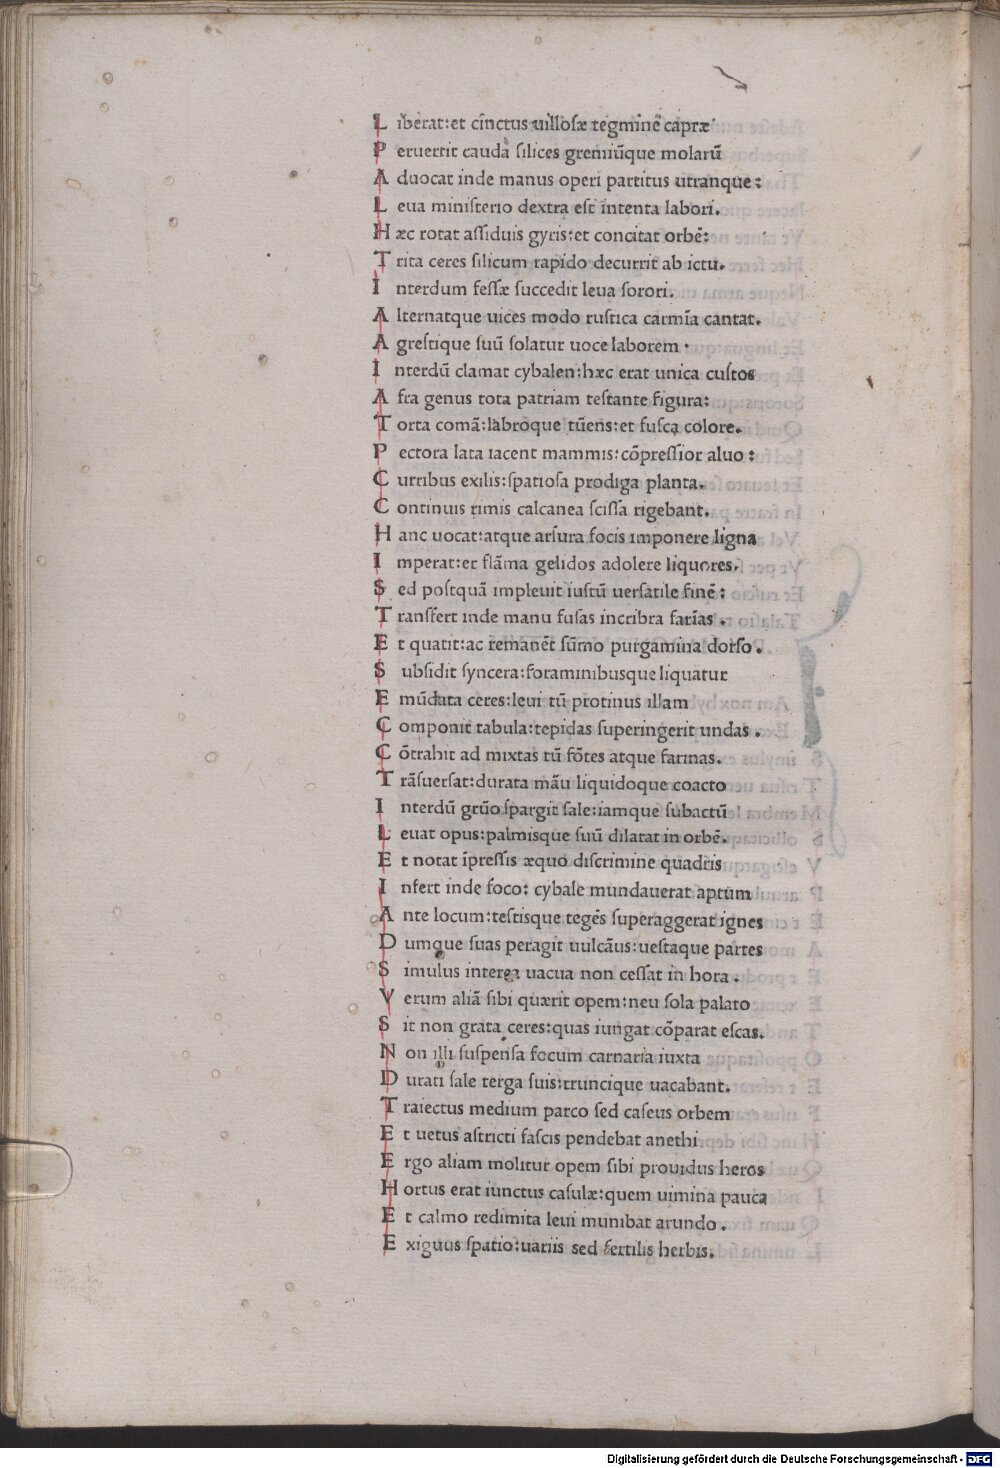 L iberat:et cīnctus uilloſæ tegmine capræ
P eruertit caudā ſilices gremiūque molarū
A duocat inde manus operi partitus utranque:
L eua miniſterio dextra eſt intenta labori.
H æc rotat aſſiduis gyris:et concitat orbē:
T rita ceres ſilicum rapido decurrit ab ictu.
I nterdum feſſæ ſuccedit leua ſorori.
A lternatque uices modo ruſtica carmīa cantat.
A greſtique ſuū ſolatur uoce laborem.
I nterdū clamat cybalen:hæc erat unica cuſtos
A fra genus tota patriam teſtante figura:
T orta comā:labroque tūens:et fuſca colore.
P ectora lata iacent mammis:cōpreſſior aluo:
C urribus exilis:ſpatioſa prodiga planta.
C ontinuis rimis calcanea ſciſſa rigebant.
H anc uocat:atque arſura focis imponere ligna
I mperat:et flāma gelidos adolere liquores.
S ed poſtquā impleuit iuſtū uerſatile finē:
T ransfert inde manu fuſas incribra farīas.
E t quatit:ac remanēt ſūmo purgamina dorſo.
S ubſidit ſyncera:foraminibusque liquatur
E mūdata ceres:leui tū protinus illam
C omponit tabula:tepidas ſuperingerit undas.
C ōtrahit ad mixtas tū fōtes atque farinas.
T rāſuerſat:durata māu liquidoque coacto
I nterdū grūo ſpargit ſale:iamque ſubactū
L euat opus:palmisque ſuū dilatat in orbē.
E t notat īpreſſis æquo diſcrimine quadris
I nfert inde foco: cybale mundauerat aptum
A nte locum:teſtisque tegēs ſuperaggerat ignes
D umque ſuas peragit uulcāus:ueſtaque partes
S imulus interea uacua non ceſſat in hora.
V erum aliā ſibi quærit opem:neu ſola palato
S it non grata ceres:quas iungat cōparat eſcas.
N on illi ſuſpenſa focum carnaria iuxta
D urati ſale terga ſuis:truncique uacabant.
T raiectus medium parco ſed caſeus orbem
E t uetus aſtricti faſcis pendebat anethi
E rgo aliam molitur opem ſibi prouidus heros
H ortus erat iunctus caſulæ:quem uimina pauca
E t calmo redimita leui munibat arundo.
E xiguus ſpatio:uariis sed fertilis herbis.
Digitalisierung gefördert durch die Deutsche Forschungsgemeinschaft - DFG